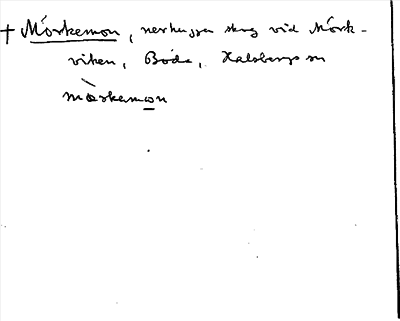 + Mörkemon, nerhuggen skog vid Mörk-
viken, Boda, Kalsbergs sn
mòrkəmon